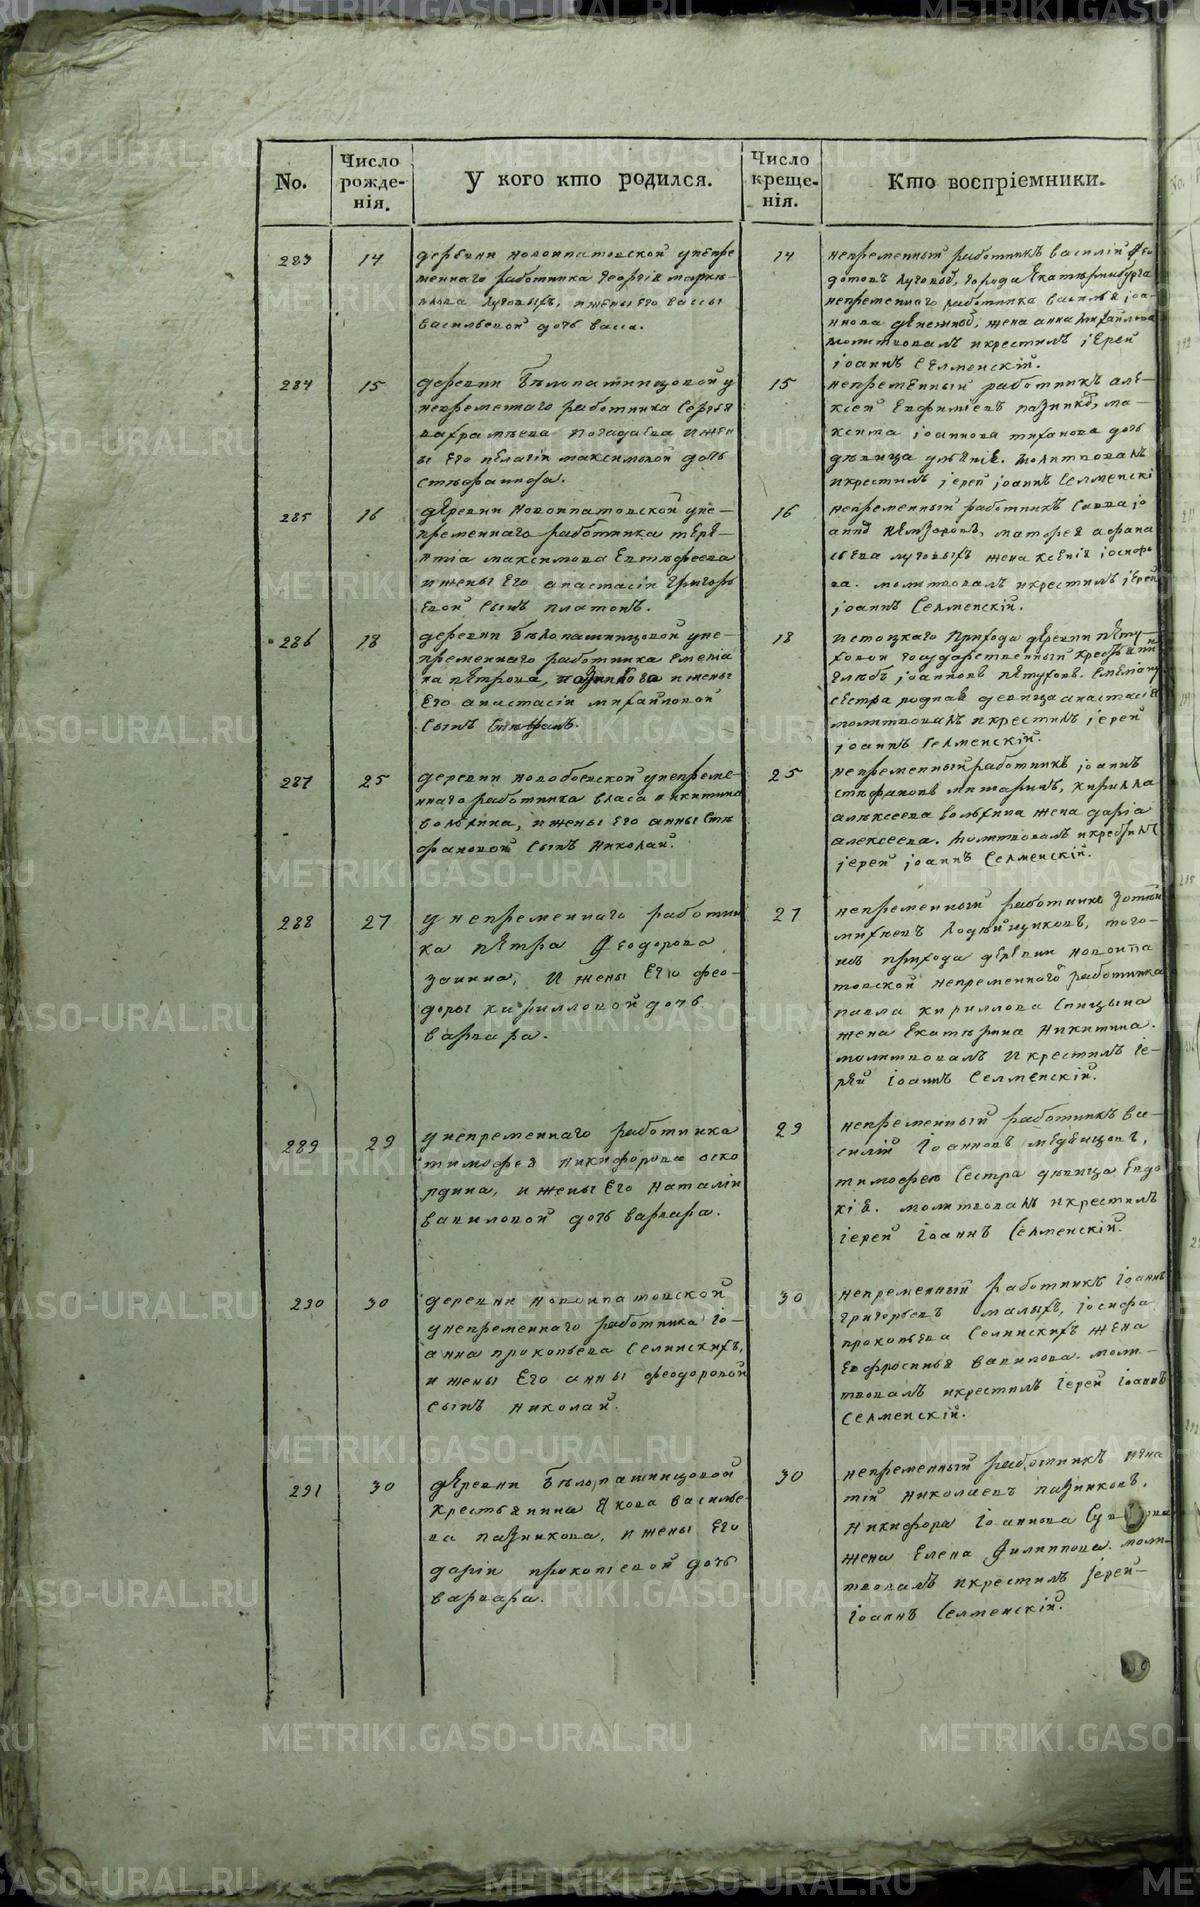 No.
Число рожде-нія.
У кого кто родился.
Число креще-нія.
Кто воспріемники.
283
14
деревни новоипатовской унепре
меннаго работника Георгія марке
лова луговыхъ, ижены его вассы
васильевой дочь васа.
14
непременный работникъ василій Фео
дотовъ луговой, города Екатеринбурга
непременнаго работника василья іоа
ннова жена анна михайлова
молитвовалъ икрестилъ іерей
іоаннъ Селменскій.
284
15
деревни Белопашинцовой у
непременнаго работника Сергея
ижен
ы его пелагіи максимовой дочь
стефанида.
15
непременный работникъ але-
ксей Евфиміевъ пазников, ма-
ксима іоаннова тиханова дочь
девица молитвовалъ
икрестилъ іерей іоаннъ Селменскі
285
16
деревни Новоипатовской уне-
пременнаго работника тере-
нтіа максимова Евтифеева
ижены его анастасіи Григорь
евой сынъ платонъ.
16
непременный работникъ Савва іо
аннов матфея афана
сьева луговыхъ жена ксенія іосифо
ва. молитвовалъ икрестилъ іерей
іоаннъ Селменскій.
286
18
деревни Белопашинцовой уне-
пременнаго работника емеліа
на петрова, пазникова ижены
его анастасіи михайловой
сынъ стефанъ.
18
истоцкаго прихода деревни пету-
ховой государственный крестьянин
глебъ іоанновъ петуховъ. емеліану
сестра родная девица анастасія
молитвовалъ икрестилъ іерей
іоаннъ Селменскій.
287
25
деревни новобоевской унепреме-
ннаго работника власа никитина
волкина, ижены его анны сте
фановой сынъ николай.
25
непременный работникъ іоаннъ
стефановъ митаринъ, кирилла
алексеева волкина жена дарія
алексеева. молитвовалъ икрестилъ
іерей іоаннъ Селменскій.
288
27
унепременнаго работни
ка петра Феодорова
заина, и жены его фео-
доры кирилловой дочь
варвара.
27
непременный работникъ зотей
михеевъ того-
жъ прихода деревни новоипа
товской непременнаго работника
павла кириллова спицына
жена екатерина никитина.
молитвовалъ и крестилъ іе-
рей іоаннъ Селменскій.
289
29
унепременнаго работника
тимофея никифорова оско
лдина, и жены его наталіи
вавиловой дочь варвара.
29
непременный работникъ ва-
силій іоанновъ медведцовъ,
тимофею сестра девица евдо
кія. молитвовалъ икрестилъ
іерей іоаннъ Селменскій.
290
30
деревни новоипатовской
унепременнаго работника іо-
анна прокопьева Селинскихъ,
и жены его анны феодоровой
сынъ николай.
30
непременный работникъ іоаннъ
григорьевъ малыхъ, іосифа
прокопьева Селинскихъ жена
евфросинья вавилова. моли-
твовалъ икрестилъ іерей іоаннъ
Селменскій.
291
30
деревни Белопашинцовой
крестьянина Якова василье
ва пазникова, и жены его
даріи прокопіевой дочь
варвара.
30
непременный работникъ игна
тій николаевъ пазниковъ,
никифора іоаннова
жена елена Филиппова. моли-
твовалъ икрестилъ іерей
іоаннъ Селменскій.
METRIKI.GASO-URAL.RU